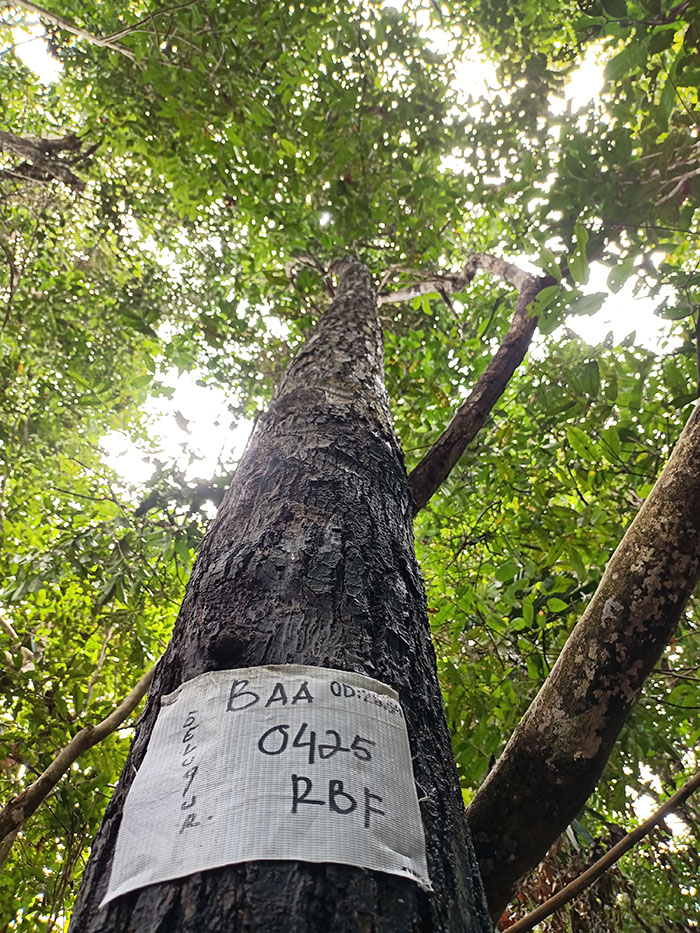 BAA OD:
0425
RBF
SELUqUR.